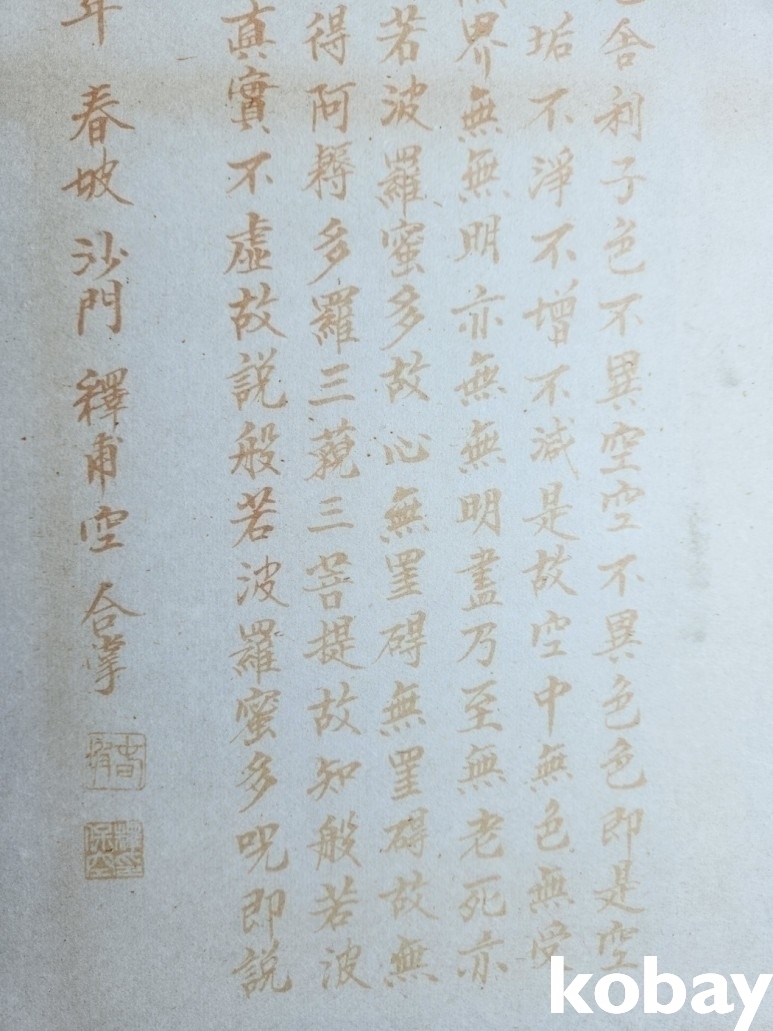 舍利子色不異空空不異色色即是空
垢不淨不增不減是故空中無色無受
界無無明亦無無明盡乃至無老死亦
若波羅蜜多故心無罣碍無罣碍故無
得阿耨多羅三藐三菩提故知般若波
真實不虛故説般若波羅蜜多呪即説
年 春坡 沙門 釋甫空 合掌
kobay